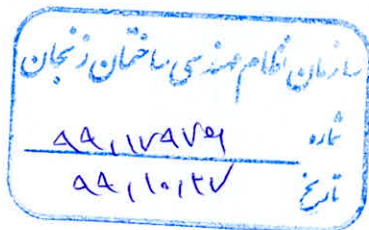 سازمان نظام مهندسی ساختمان زنجان
شماره
تاریخ ۹۹,۱۰,۲۷